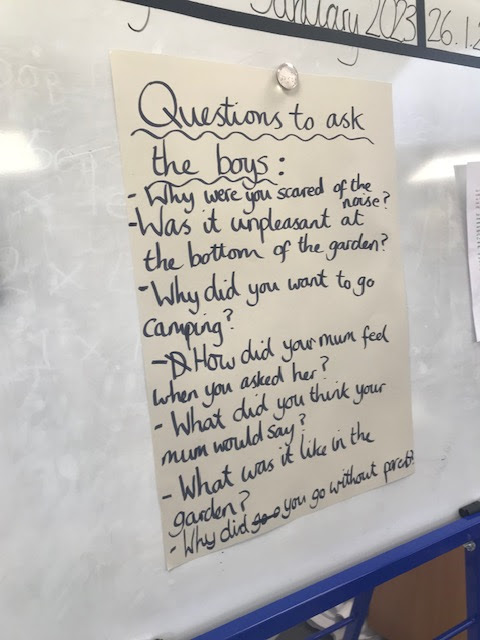 January 2023
26.1.2
Questions to ask
the boys:
- Why were you scared of the
noise?
- Was it unpleasant at
the bottom of the garden?
- Why did you want to go
camping?
- How did your mum feel
when you asked her?
- What did you think your
mum would say?
- What was it like in the
garden?
- Why did you go without